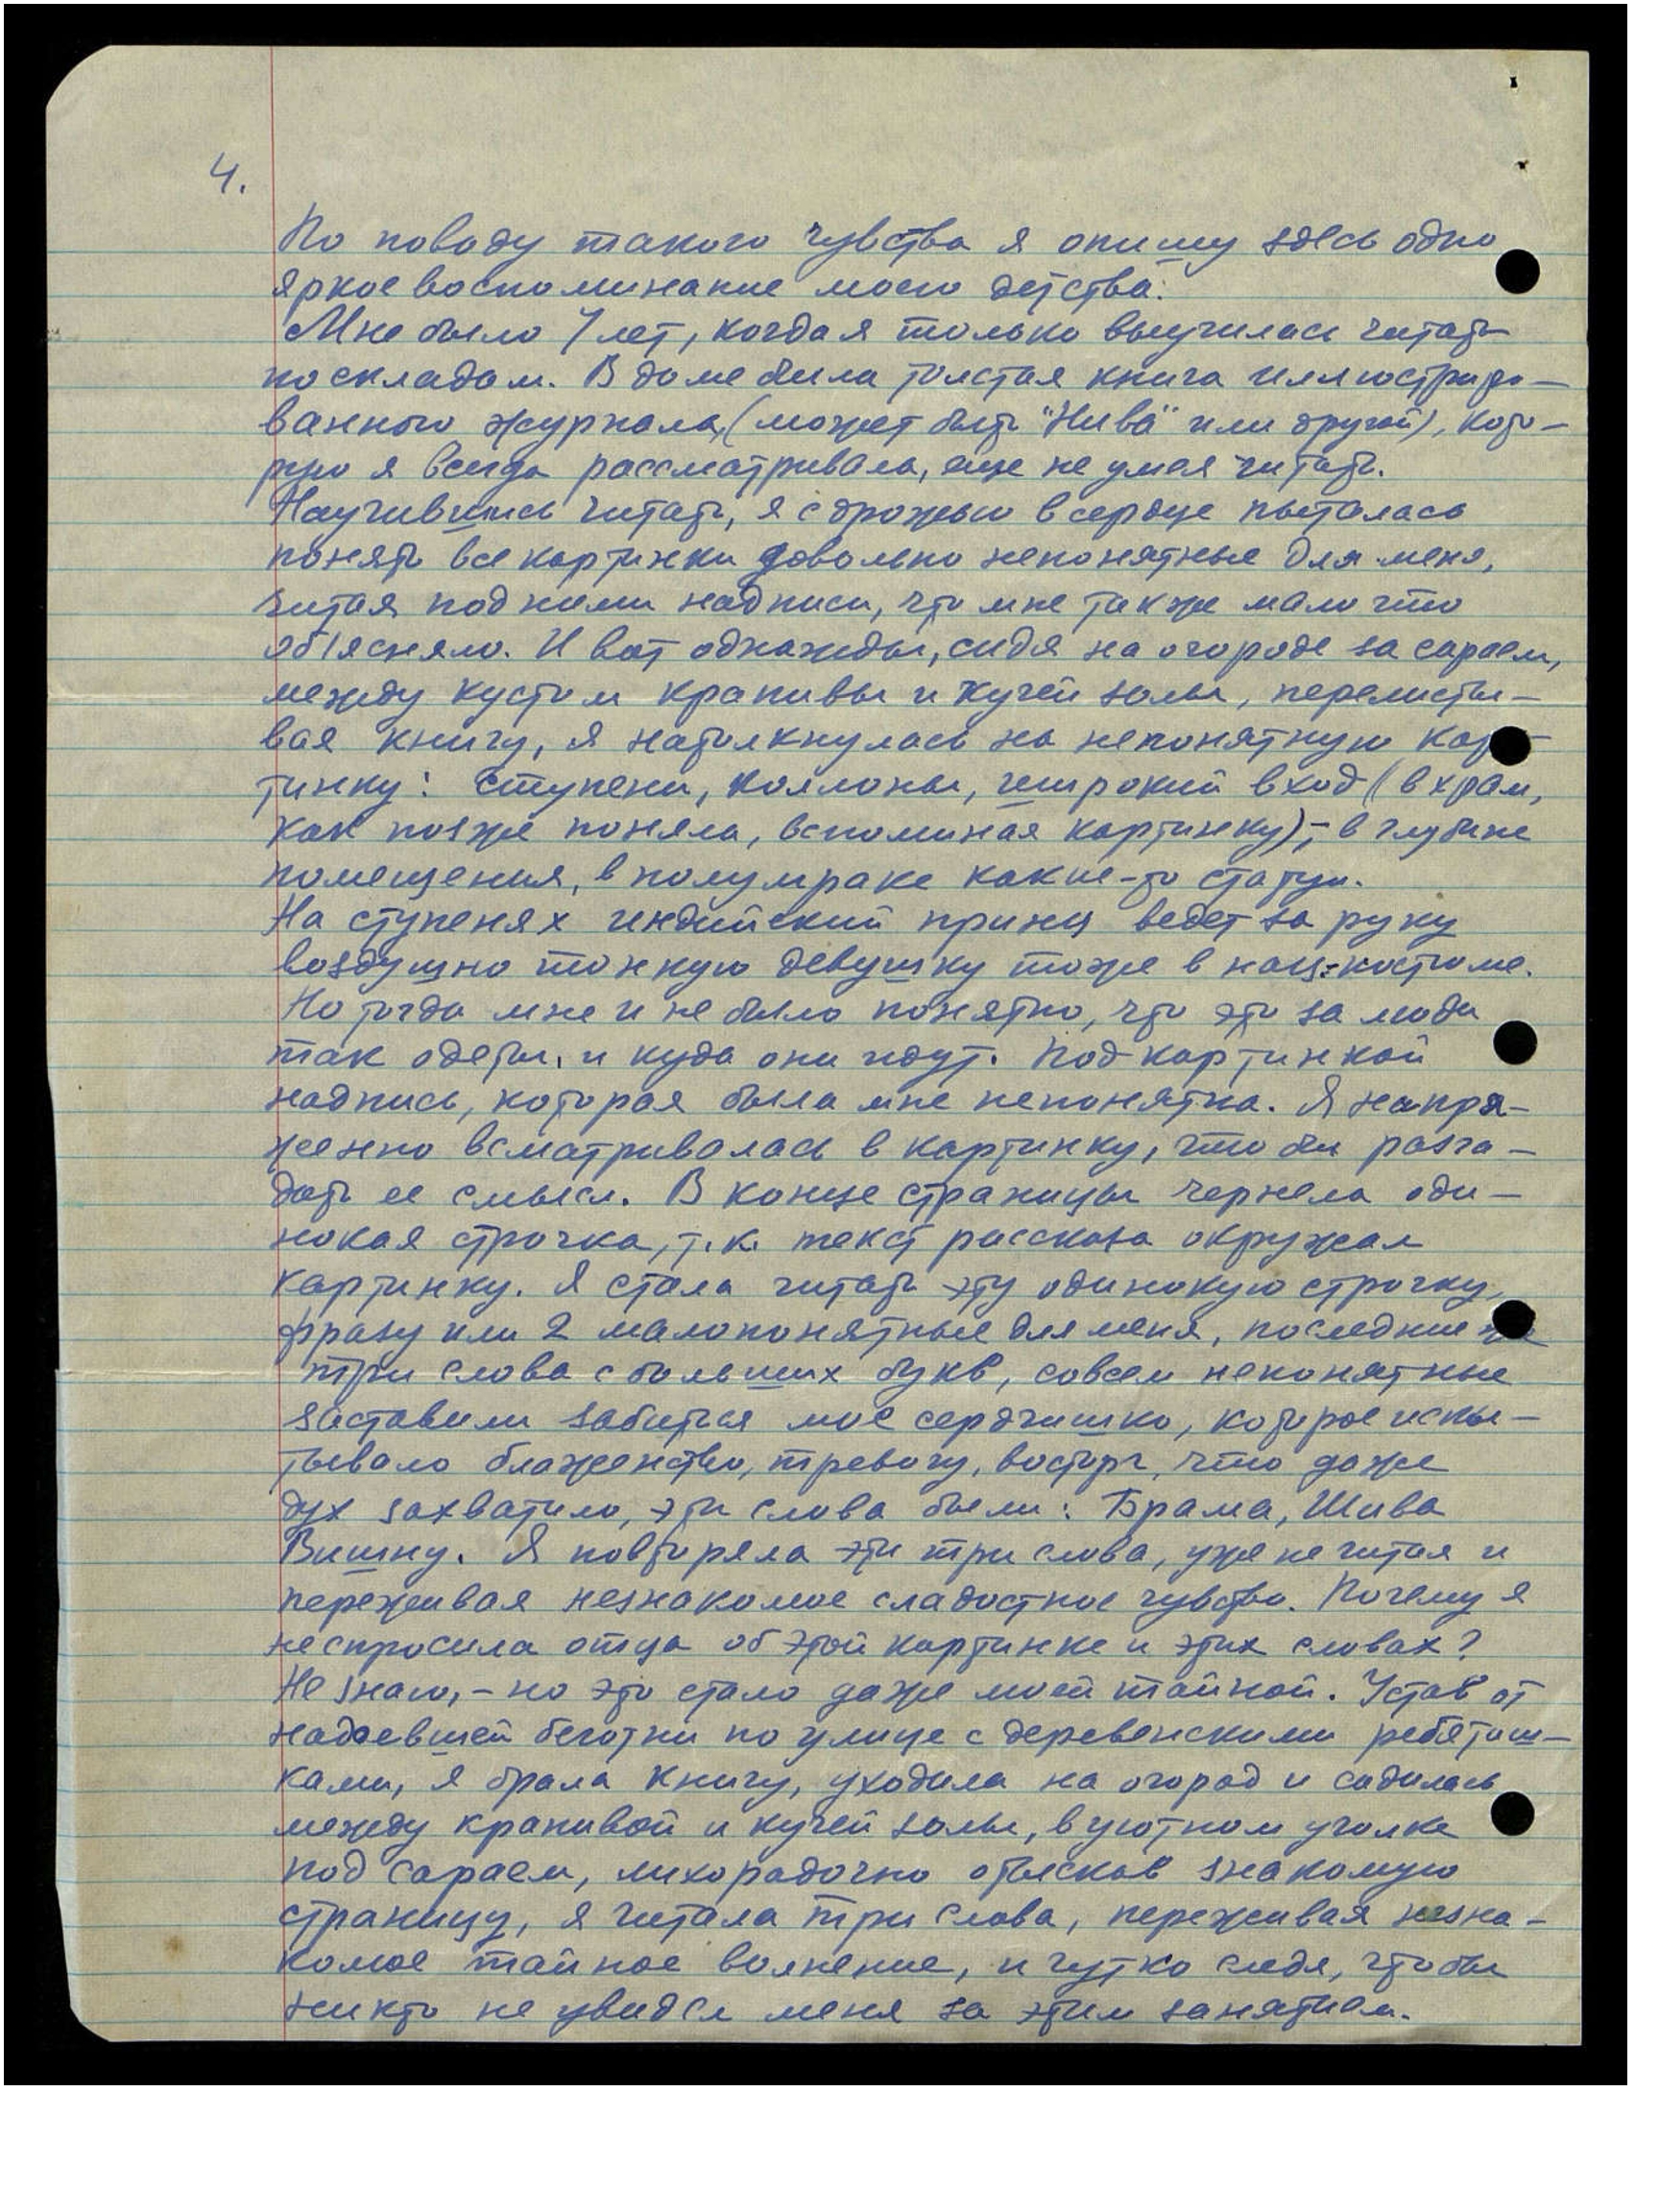 4.
По поводу такого чувства я опишу здесь одно
яркое воспоминание моего детства.
Мне было 7 лет, когда я только выучилась читать
по складам. В доме была толстая книга иллюстриро-
ванного журнала, (может быть "Нива" или другой), кото-
рую я всегда рассматривала, еще не умея читать.
Научившись читать, я с дрожью в сердце пыталась
понять все картинки довольно непонятные для меня,
читая под ними надписи, что мне также мало что
об'ясняло. И вот однажды, сидя на огороде за сараем,
между кустом крапивы и кучей золы, перелисты-
вая книгу, я натолкнулась на непонятную кар-
тинку: ступени, коллоны, широкий вход (в храм,
как позже поняла, вспоминая картинку); - в глубине
помещения, в полумраке какие-то статуи.
На ступенях индийский принц ведет за руку
воздушно тонкую девушку тоже в нац-костюме.
Но тогда мне и не было понятно, что это за люди
так одеты, и куда они идут. Под картинкой
надпись, которая была мне непонятна. Я напря-
женно всматривалась в картинку, что бы разга-
дать ее смысл. В конце страницы чернела оди-
нокая строчка, т.к. текст рассказа окружал
картинку. Я стала читать эту одинокую строчку,
фразу или 2 малопонятные для меня, последние же
три слова с больших букв, совсем непонятные
заставили забиться мое сердчишко, которое испы-
тывало блаженство, тревогу, восторг, что даже
дух захватило, эти слова были: Брама, Шива
Вишну. Я повторяла эти три слова, уже не читая и
переживая незнакомое сладостное чувство. Почему я
не спросила отца об этой картинке и этих словах?
Не знаю, - но это стало даже моей тайной. Устав от
надоевшей беготни по улице с деревенскими ребятиш-
ками, я брала книгу, уходила на огород и садилась
между крапивой и кучей золы, в уютном уголке
под сараем, лихорадочно отыскав знакомую
страницу, я читала три слова, переживая незна-
комое тайное волнение, и чутко следя, чтобы
никто не увидел меня за этим занятием.